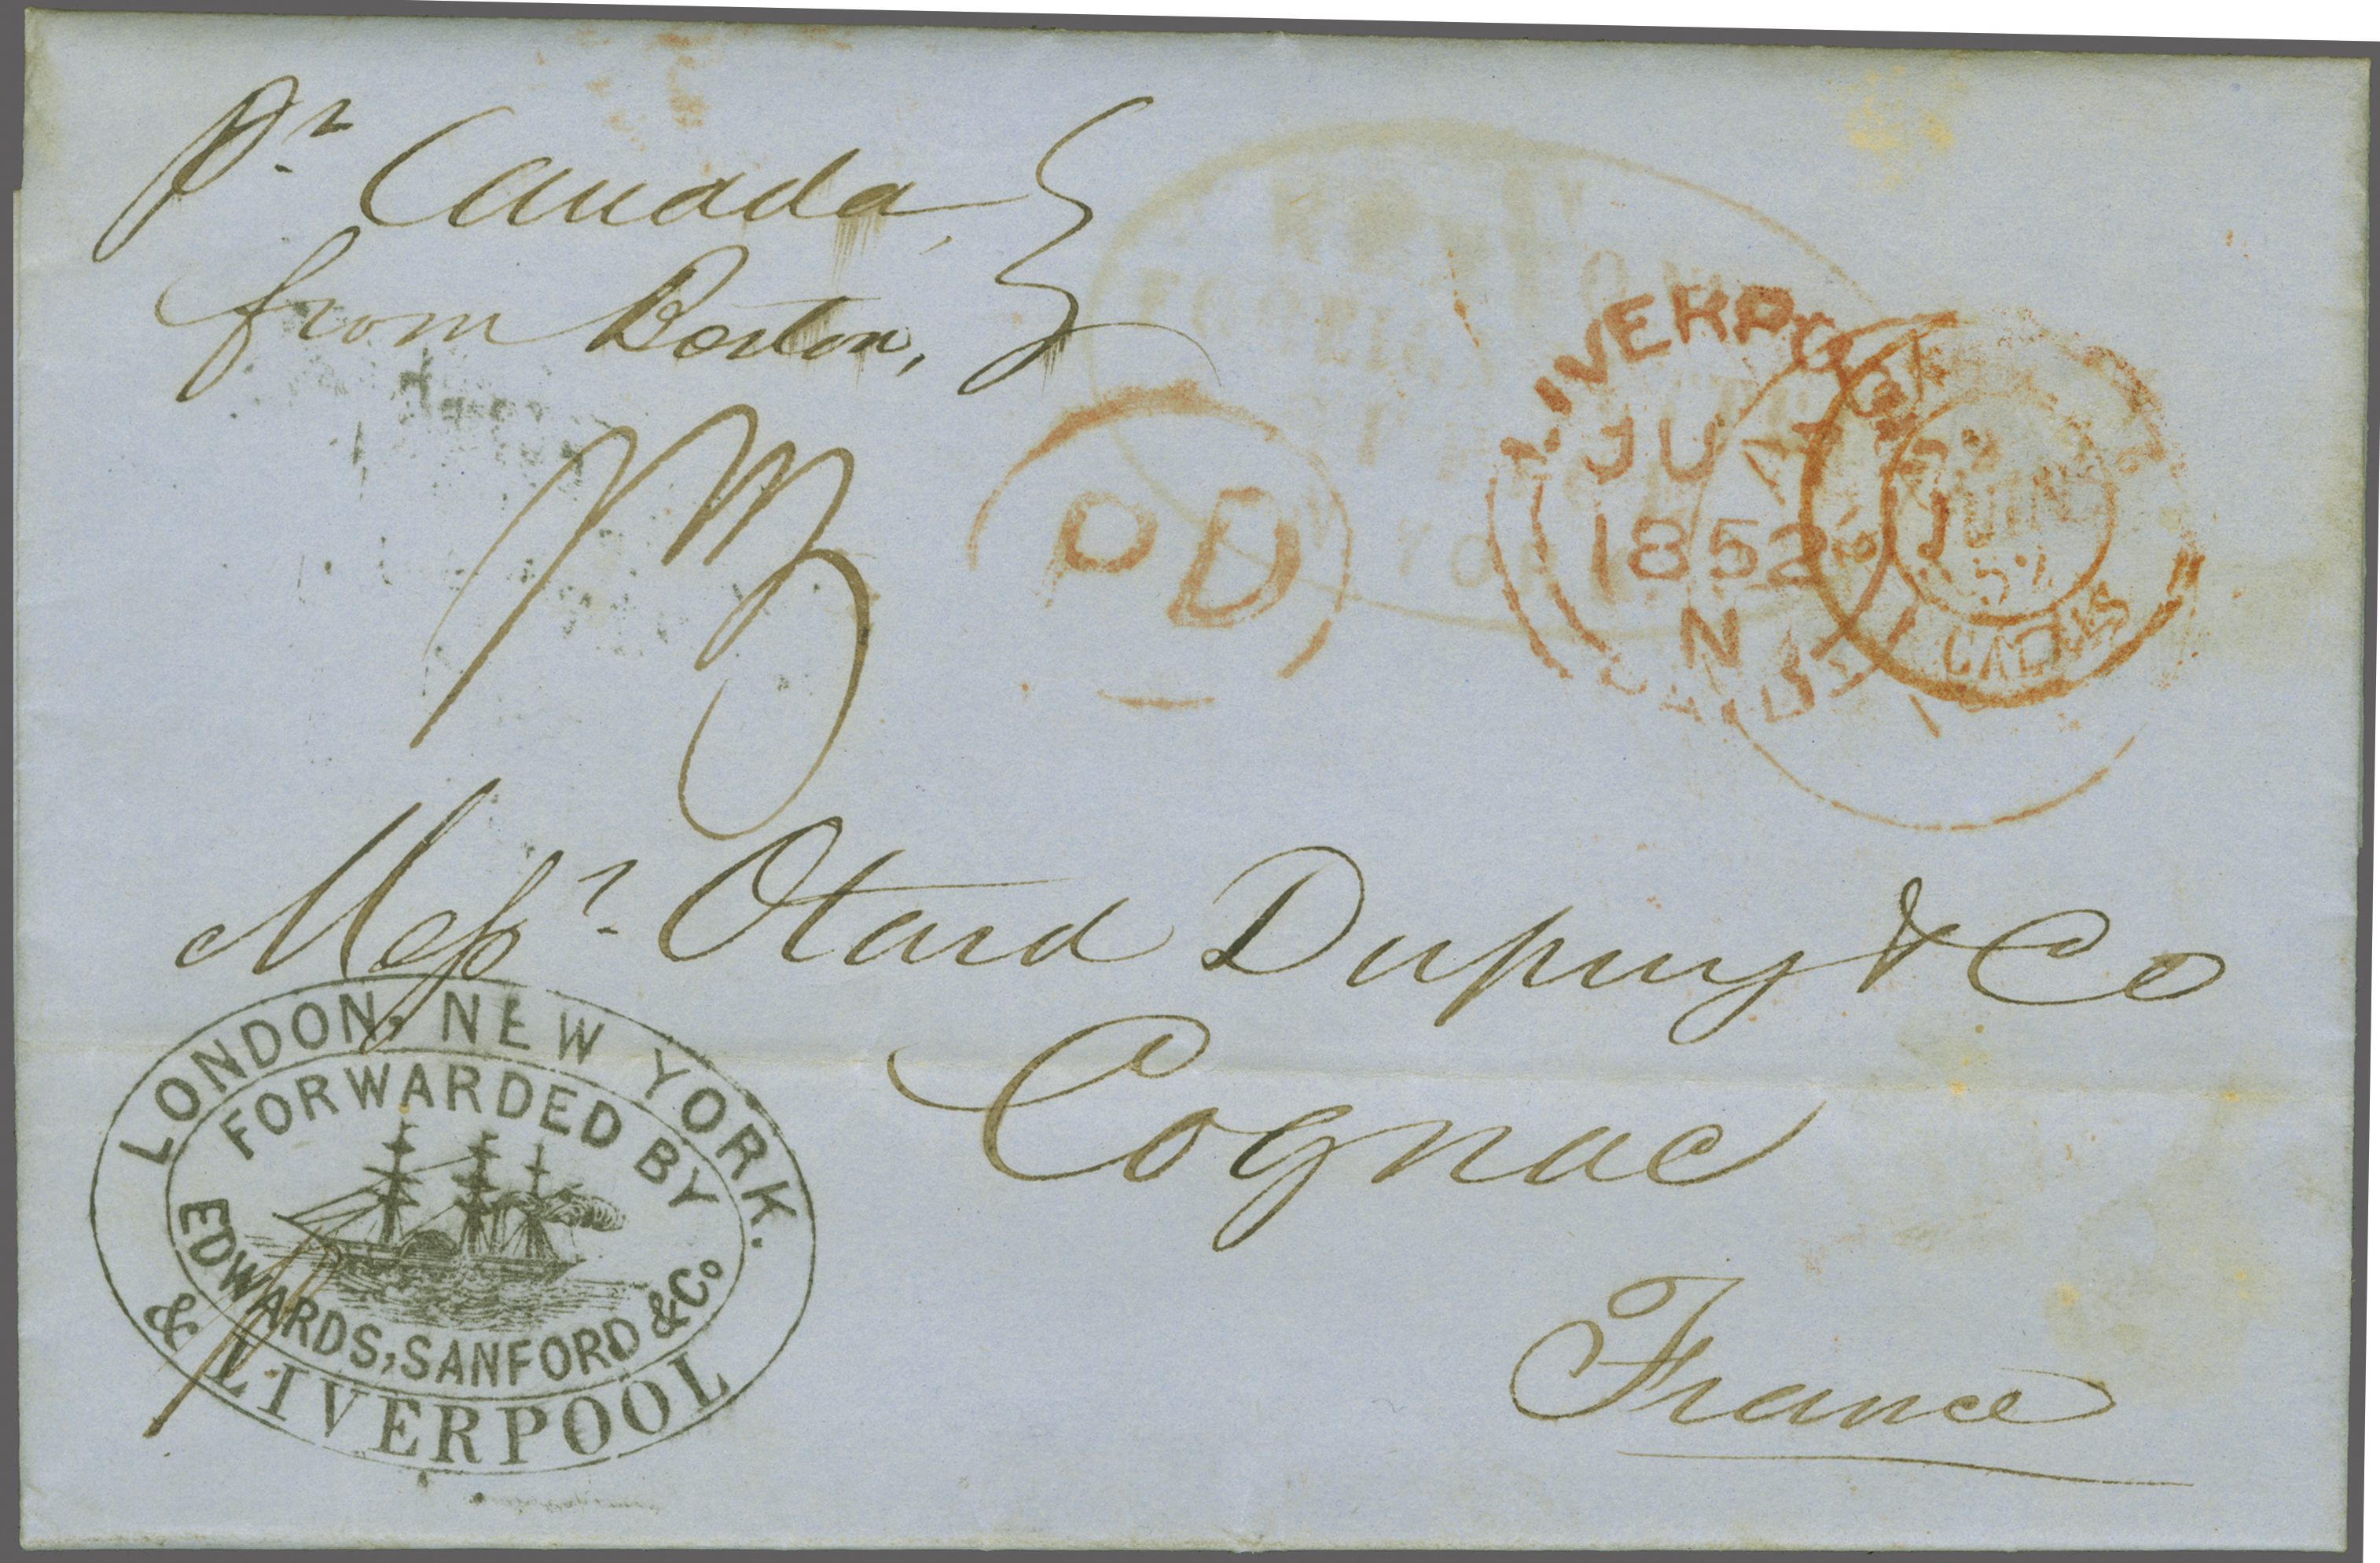 Pr. Canada,
from Boston,
PD
LIVERPOOL
JU
1852
N
PAID
JUIN
52
CALAIS
Messr. Otard Dupuy & Co
Cognac
France
LONDON, NEW YORK.
& LIVERPOOL
FORWARDED BY
EDWARDS, SANFORD & Co